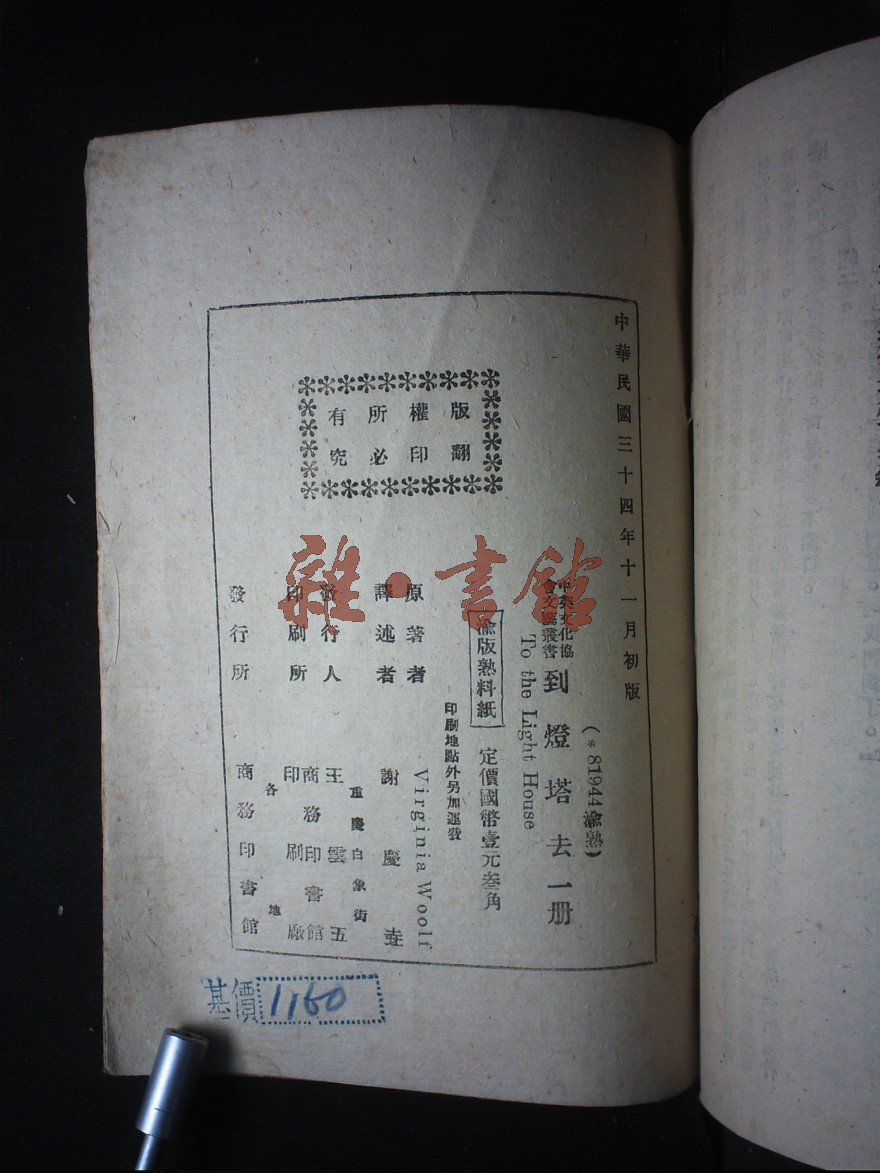 中華民國三十四年十一月初版
(*81944渝熟)
中英文化協
會文藝叢書 到燈塔去一册
To the Light House
渝版熟料紙 定價國幣壹元叁角
印刷地點外另加運費
版權所有
翻印必究
原著者 Virginia Woolf
譯述者 謝慶垚
發行人 王雲五
重慶白象街
印刷所 商務印書館
印刷廠
各地
發行所 商務印書館
基價 1160
雜·書館